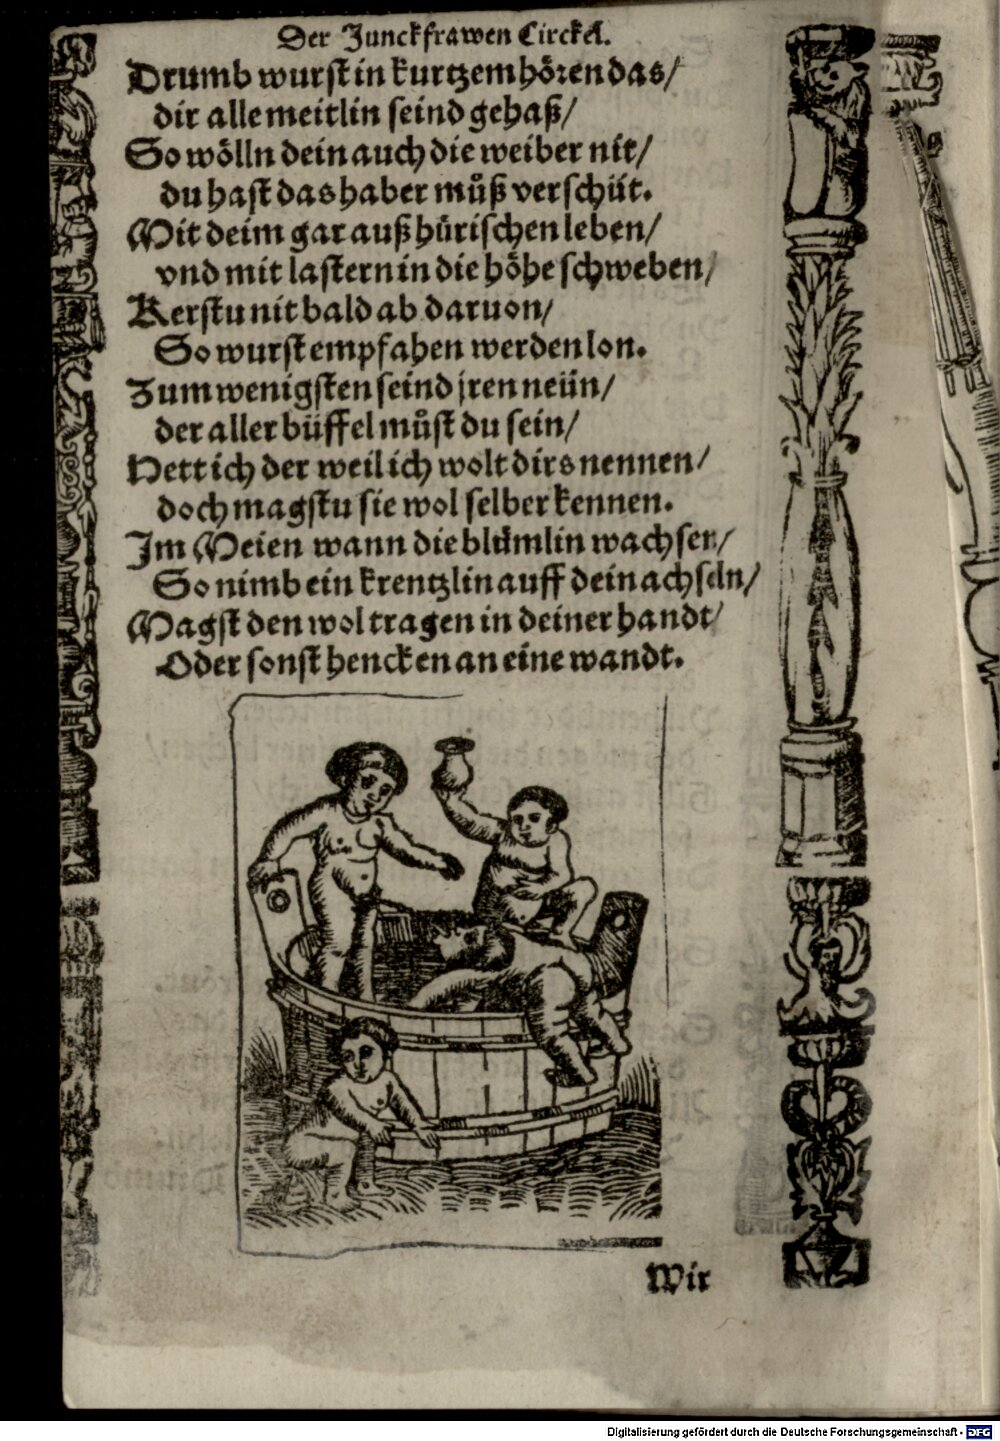 Der Junckfrawen Circkel.
Drumb wurst in kurtzem hören das/
dir alle meitlin seind gehaß/
So wölln dein auch die weiber nit/
du hast das haber můß verschüt.
Mit deim gar auß hůrischen leben/
vnd mit lastern in die höhe schweben/
Kerstu nit bald ab daruon/
So wurst empfahen werden lon.
Zum wenigsten seind jren neün/
der aller büffel můst du sein/
Hett ich der weil ich wolt dirs nennen/
doch magstu sie wol selber kennen.
Im Meien wann die blůmlin wachsen/
So nimb ein krentzlin auff dein achseln/
Magst den wol tragen in deiner handt/
Oder sonst hencken an eine wandt.
Wir
Digitalisierung gefördert durch die Deutsche Forschungsgemeinschaft - DFG